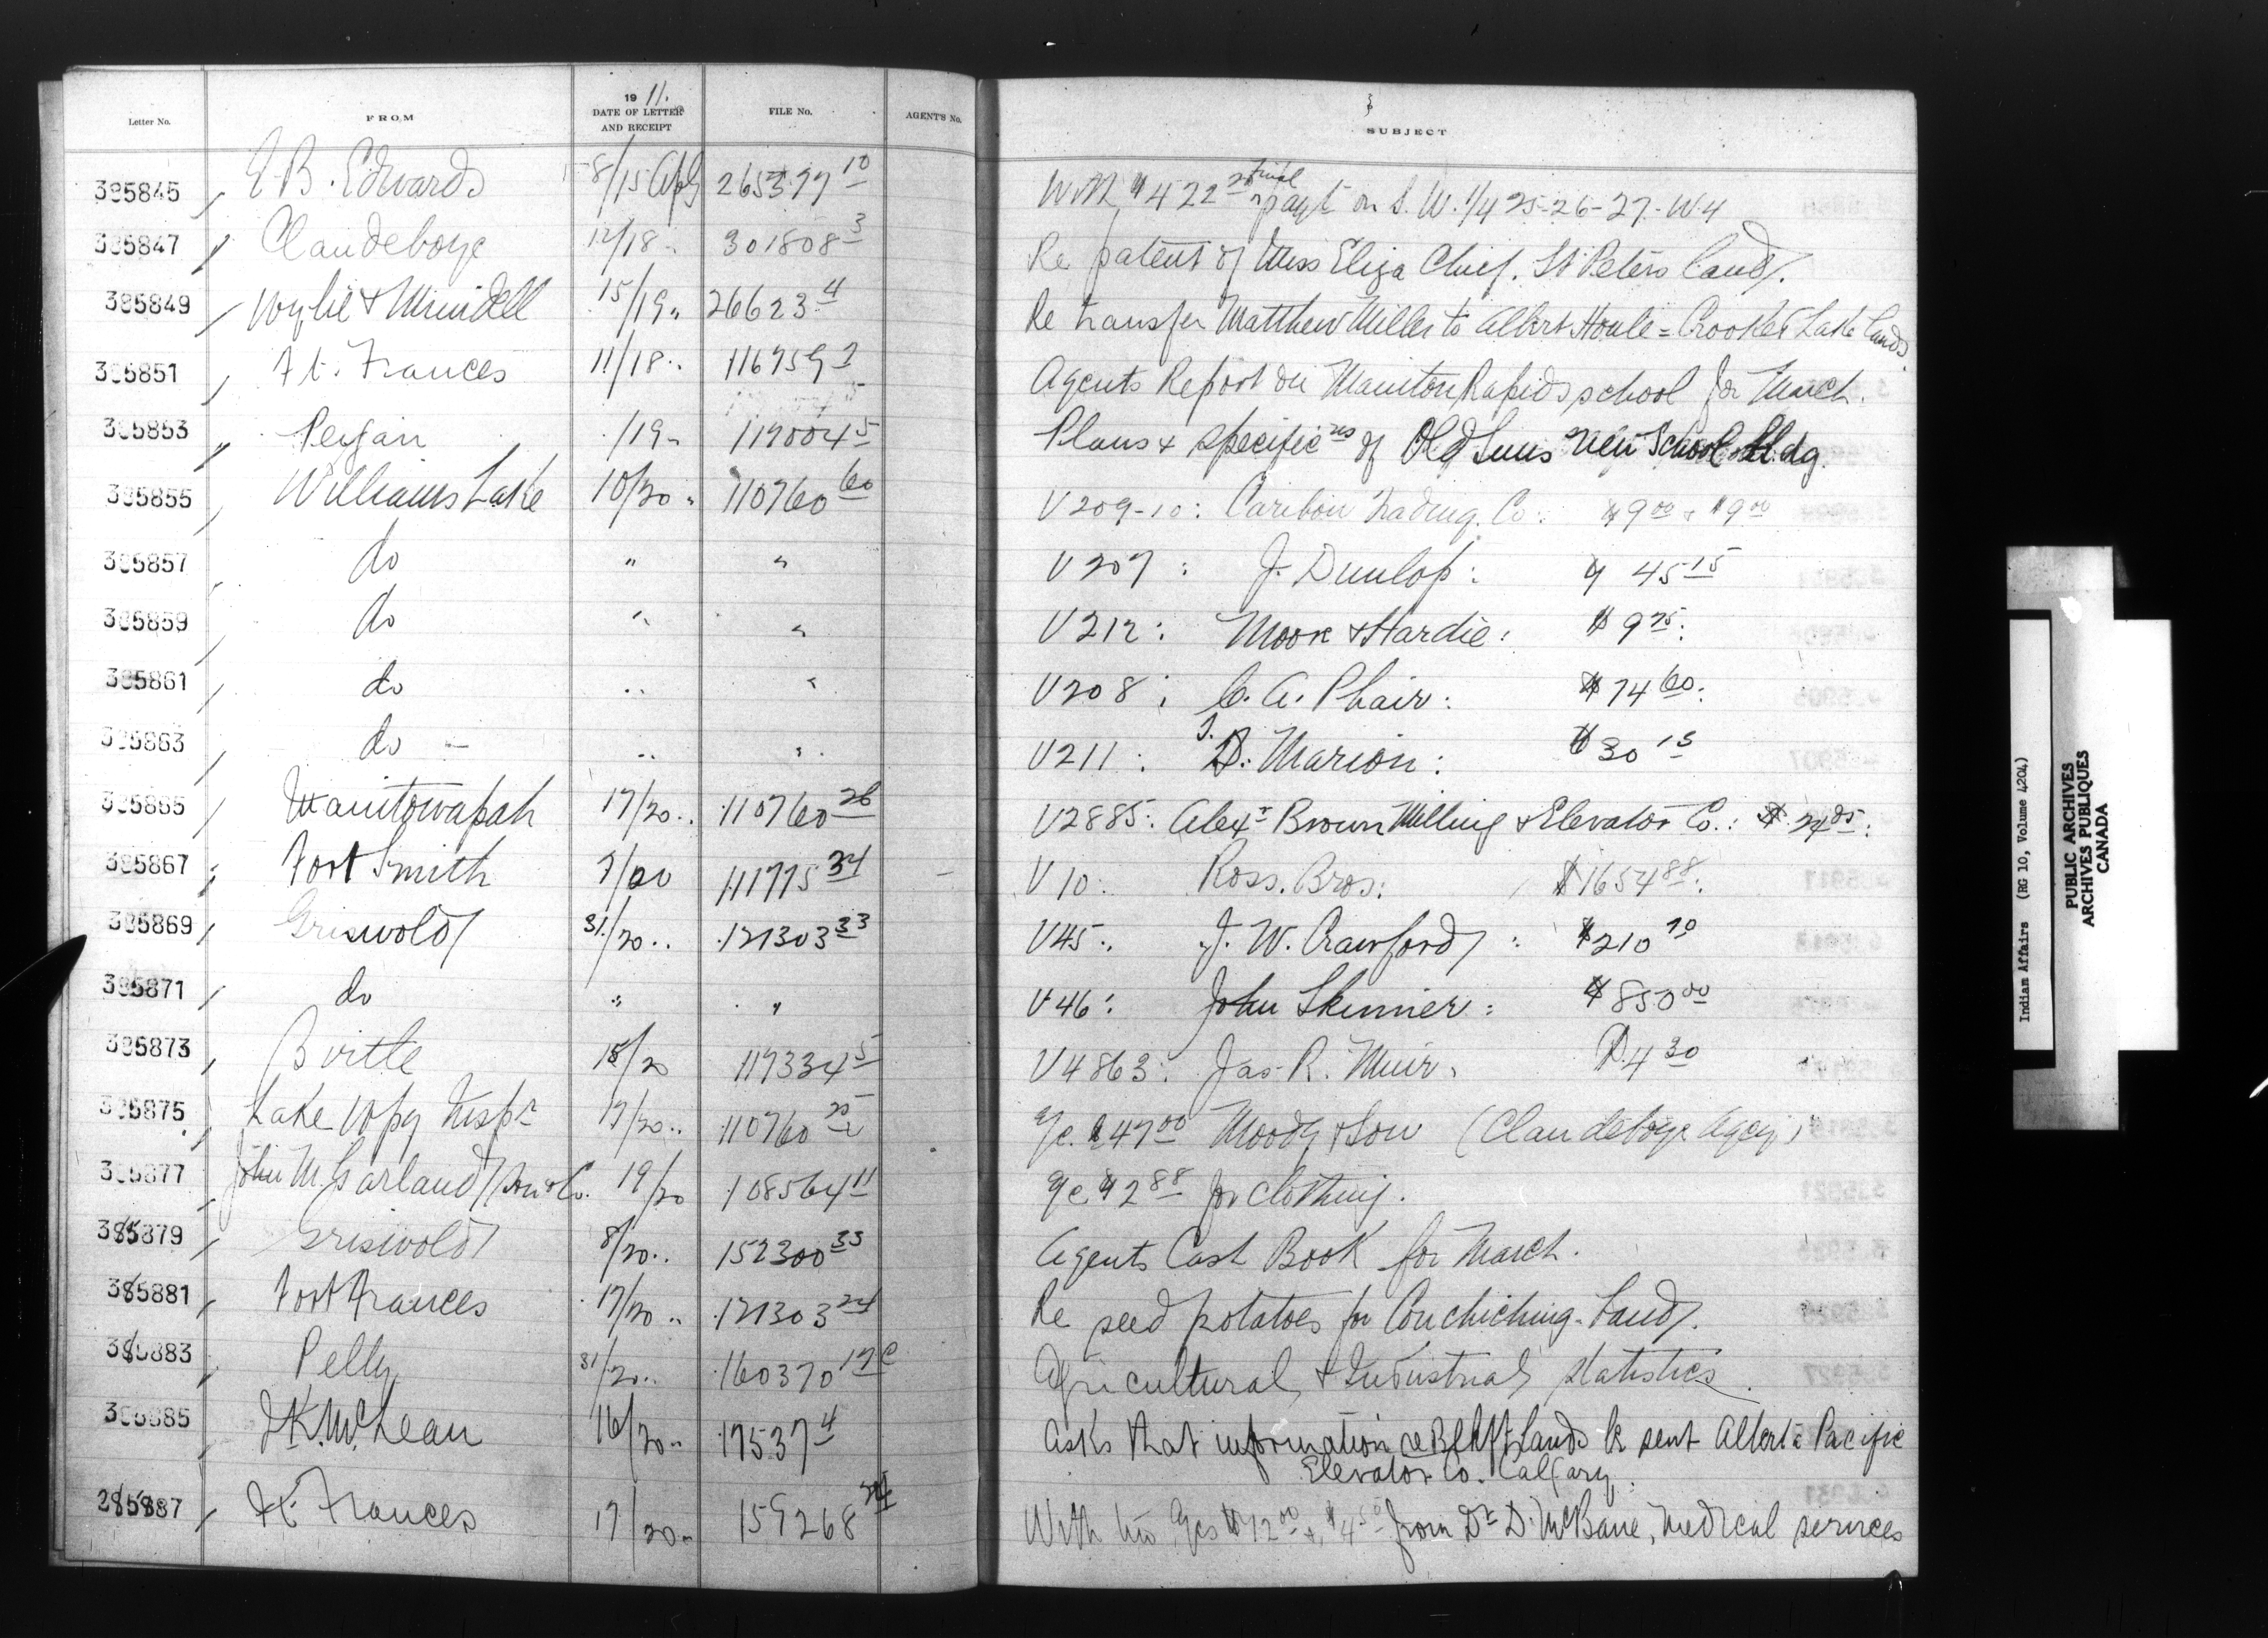 Letter No. FROM 1911. DATE OF LETTER AND RECEIPT FILE No. AGENT'S No. SUBJECT
385845 E. B. Edwards 8/15 Apl 265377 10 With $422 20 final payt on S.W. 1/4 25-26-27-W4
385847 Clandeboye 12/18 " 301808 3 Re patent of Miss Eliza Chief. St Peters land.
385849 Wylie & Mundell 15/19 " 26623 4 Re transfer Matthew Miller to Albert Houle = Crooked Lake lands
385851 Ft. Frances 11/18 " 116759 2 Agents Report on Manitou Rapids school for March.
385853 Peigan /19 " 119004 5 Plans & specificns of Old Suns New School bldg.
385855 Williams Lake 10/20 " 110760 60 V209-10: Cariboo Trading Co: $9 00 & $9 00
385857 do " " V207: J. Dunlop: $45 15
385859 do " " V212: Moore & Hardie: $9 75:
385861 do " " V208: C. A. Phair: $74 60:
385863 do " " V211: I. D. Marion: $30 15
385865 Manitowapah 17/20 " 110760 26 V2885: Alexr Brown Milling & Elevator Co.: $24 85:
385867 Fort Smith 9/20 111775 34 V10: Ross. Bros: $1654 88:
385869 Griswold 31/20 " 121303 33 V45: J. W. Crawford: $210 70
385871 do " " V46: John Skinner: $850 00
385873 Birtle 18/20 119334 5 V4863: Jas. R. Muir: $4 30
385875 Lake Wpg Inspr 17/20 " 110760 25 a/c. $47 00 Moody & Son (Clandeboye Agcy)
385877 John M. Garland Son & Co. 19/20 108564 11 a/c $2 88 for clothing.
385879 Griswold 8/20 " 152300 33 Agents Cash Book for March.
385881 Fort Frances 17/20 " 121303 24 Re seed potatoes for Couchiching Band.
385883 Pelly 31/20 " 160370 17c Agricultural & Industrial statistics.
385885 J.K. McLean 16/20 " 17537 4 Asks that information re Blkft Lands be sent Alberta Pacific
Elevator Co. Calgary.
385887 Ft. Frances 17/20 " 159268 24 With two a/cs $12 00 & $4 50 from Dr D. McBane, medical services
Indian Affairs (RG 10, Volume 4204)
PUBLIC ARCHIVES
ARCHIVES PUBLIQUES
CANADA